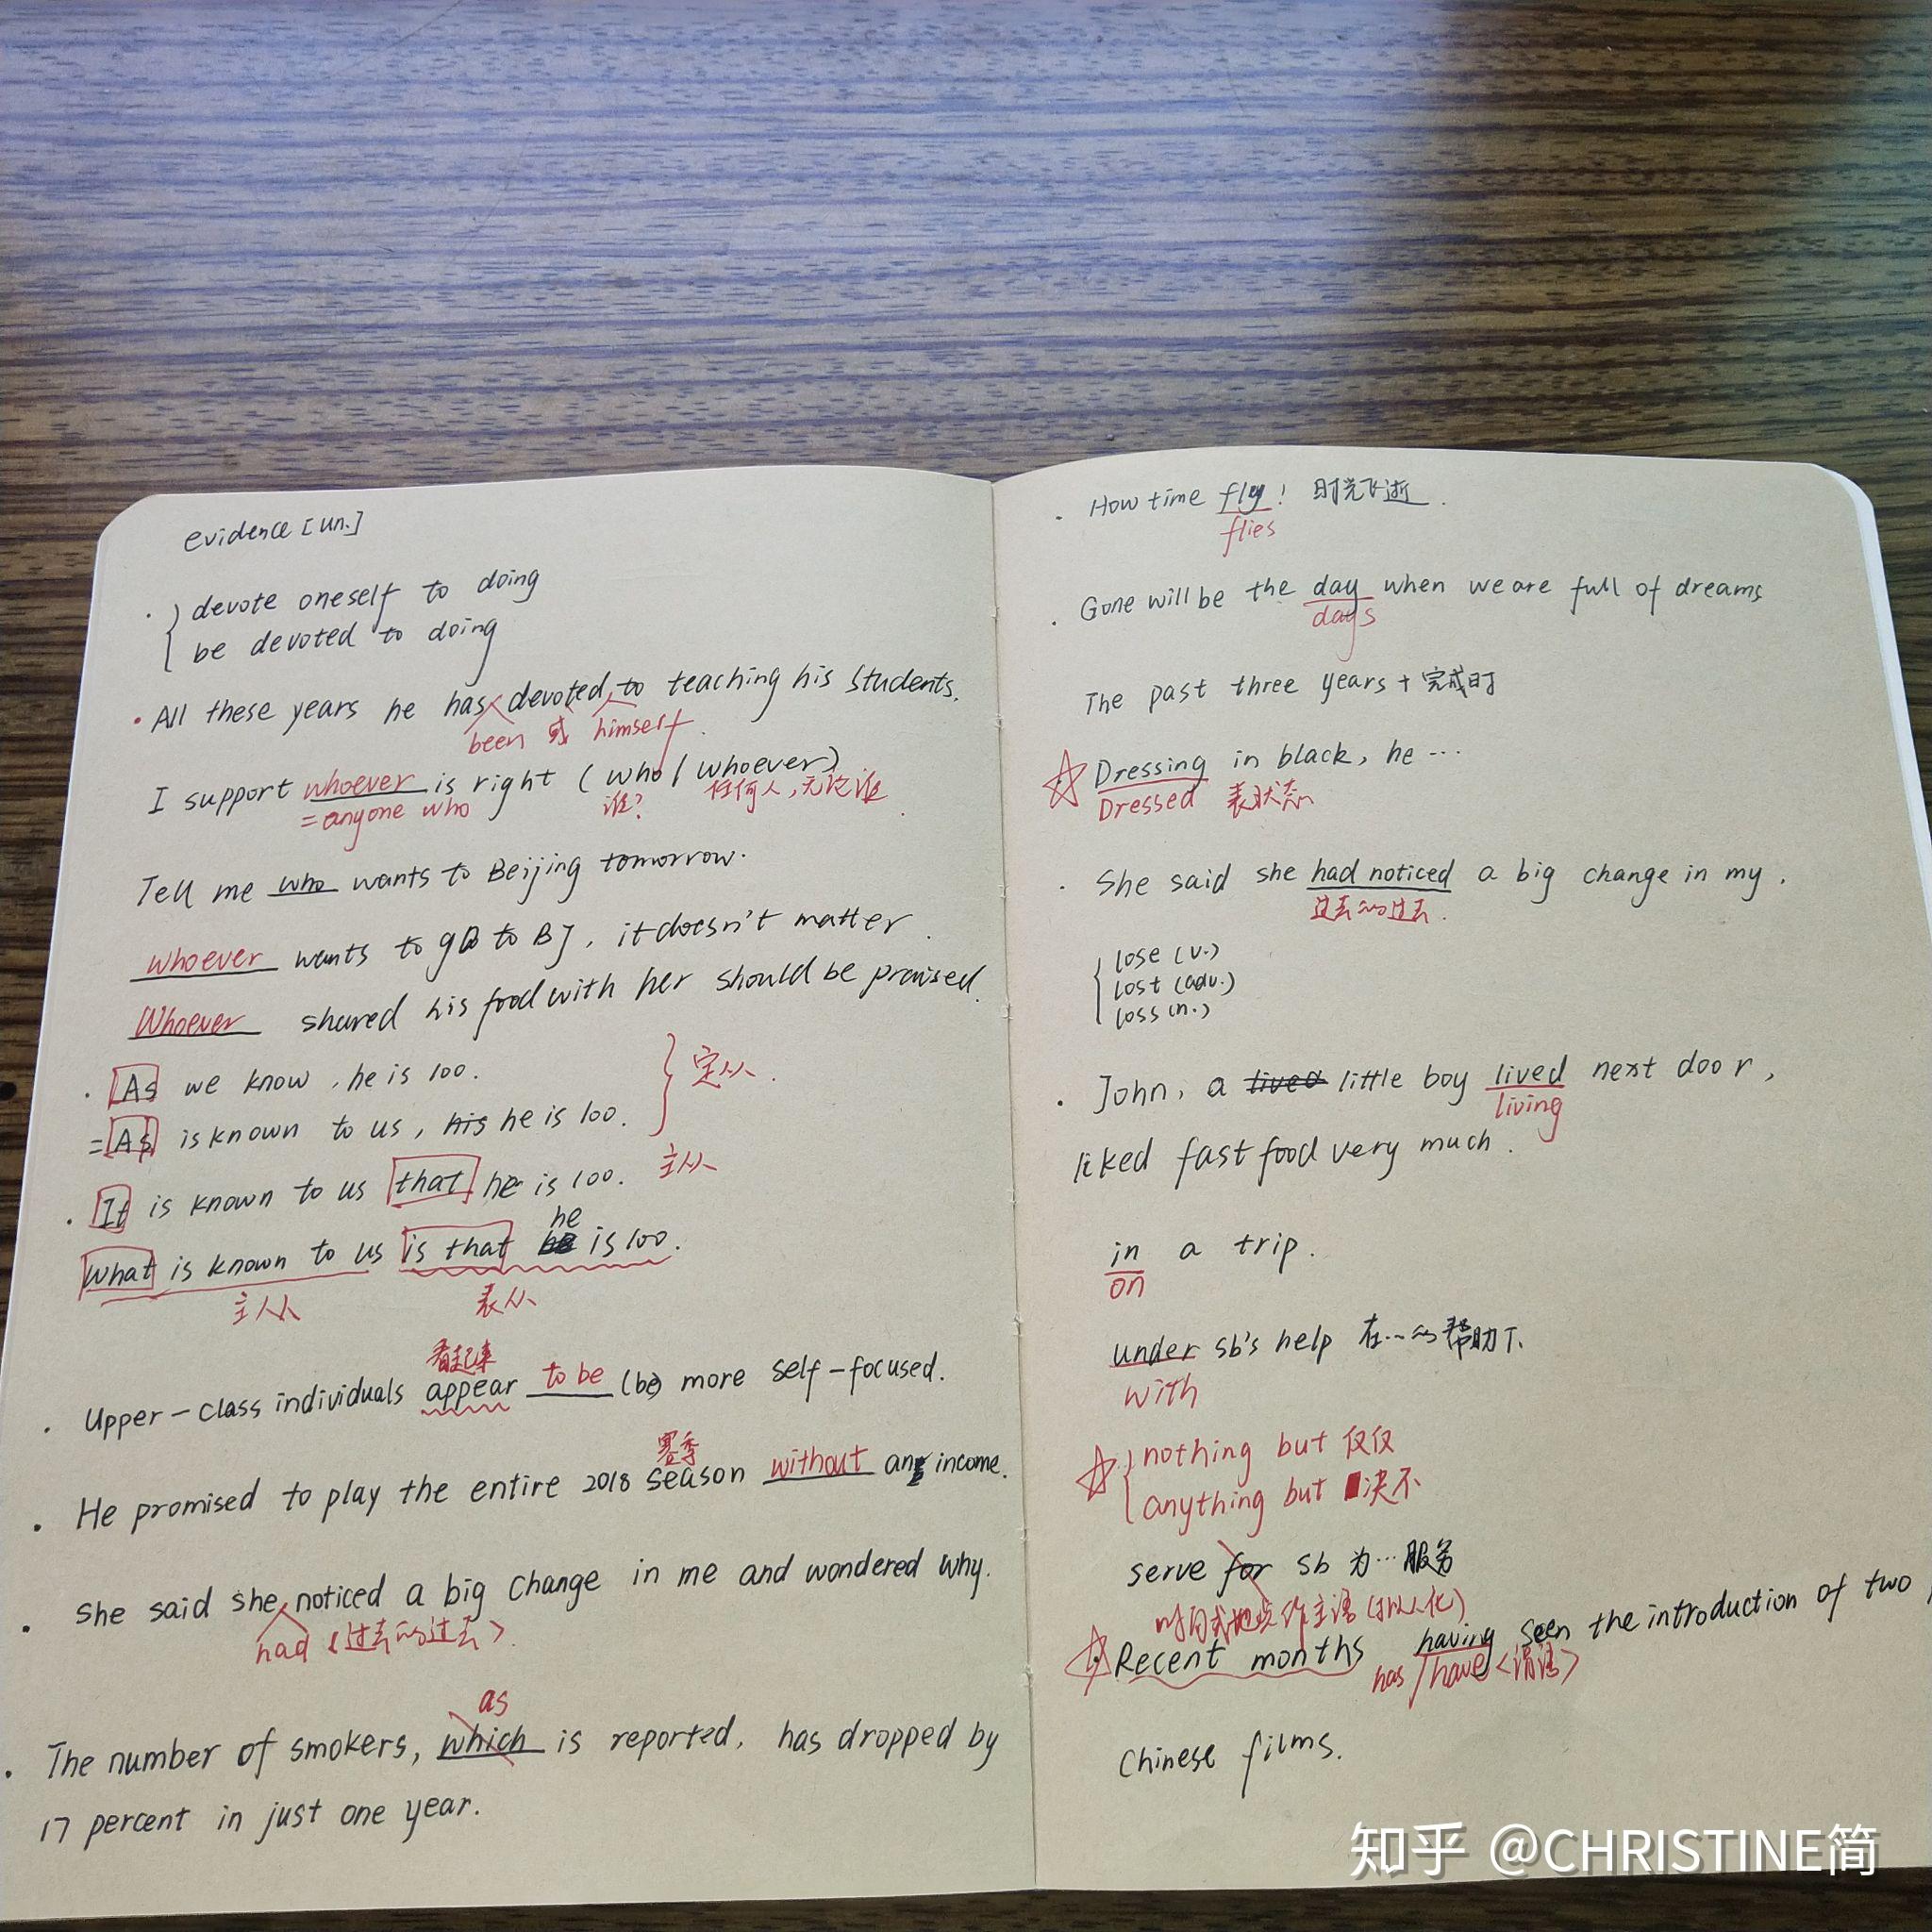 evidence [un.]
devote oneself to doing
be devoted to doing
All these years he has devoted to teaching his students.
been 或 himself
I support whoever is right (who / whoever)
=anyone who 谁? 任何人,无论谁
Tell me who wants to Beijing tomorrow.
whoever wants to go to BJ, it doesn't matter.
Whoever shared his food with her should be praised.
As we know, he is 100.
定从
=As is known to us, his he is 100.
It is known to us that he is 100. 主从
he
What is known to us is that he is 100.
主从 表从
看起来
Upper-class individuals appear to be (be) more self-focused.
赛季
He promised to play the entire 2018 season without any income.
She said she noticed a big change in me and wondered why.
had <过去的过去>
as
The number of smokers, which is reported, has dropped by
17 percent in just one year.
How time fly! 时光飞逝.
flies
Gone will be the day when we are full of dreams
days
The past three years + 完成时
Dressing in black, he ...
Dressed 表状态
She said she had noticed a big change in my.
过去的过去.
lose (v.)
lost (adv.)
loss (n.)
John, a lived little boy lived next door,
living
liked fast food very much.
in a trip.
on
under sb's help 在...的帮助下
with
nothing but 仅仅
anything but 决不
serve for sb 为...服务
时间或地点作主语(拟人化)
Recent months having seen the introduction of two
has / have <谓语>
Chinese films.
知乎 @CHRISTINE简